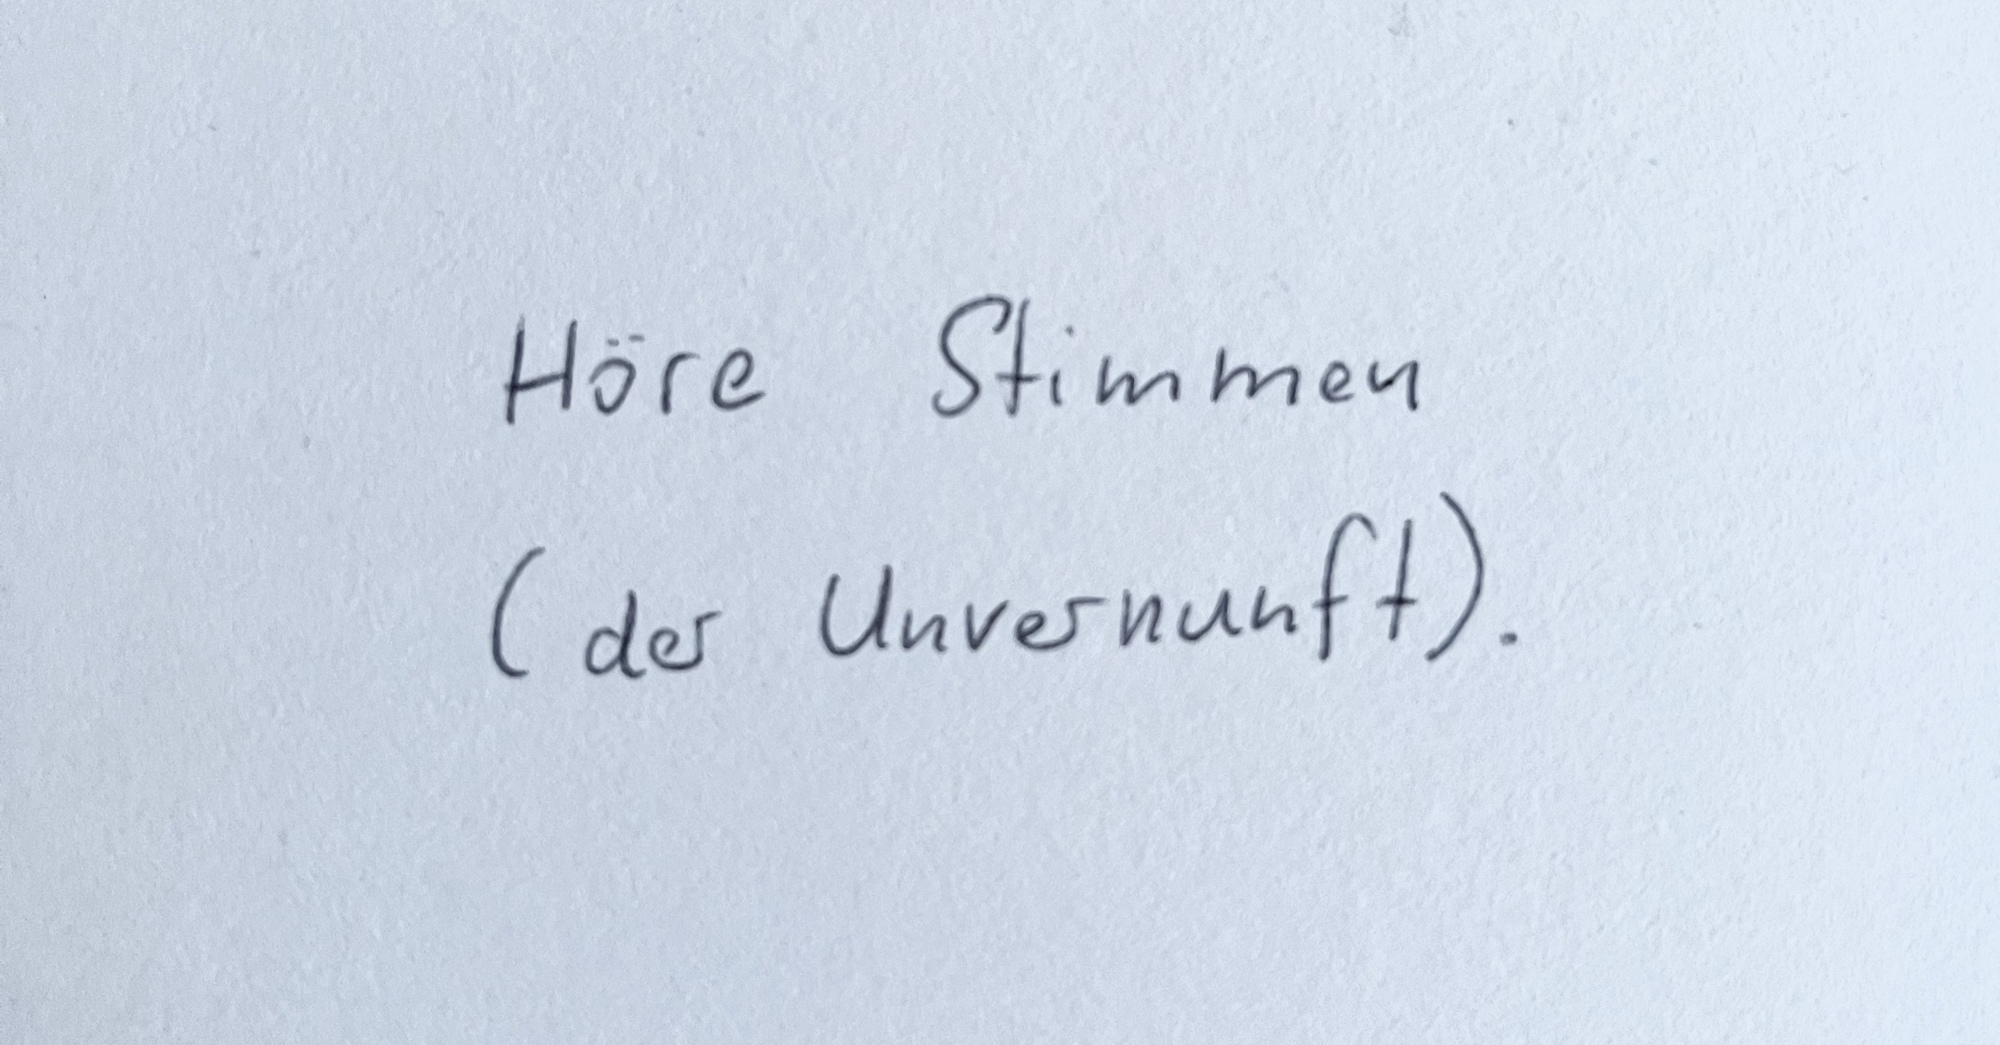 Höre Stimmen
(der Unvernunft).